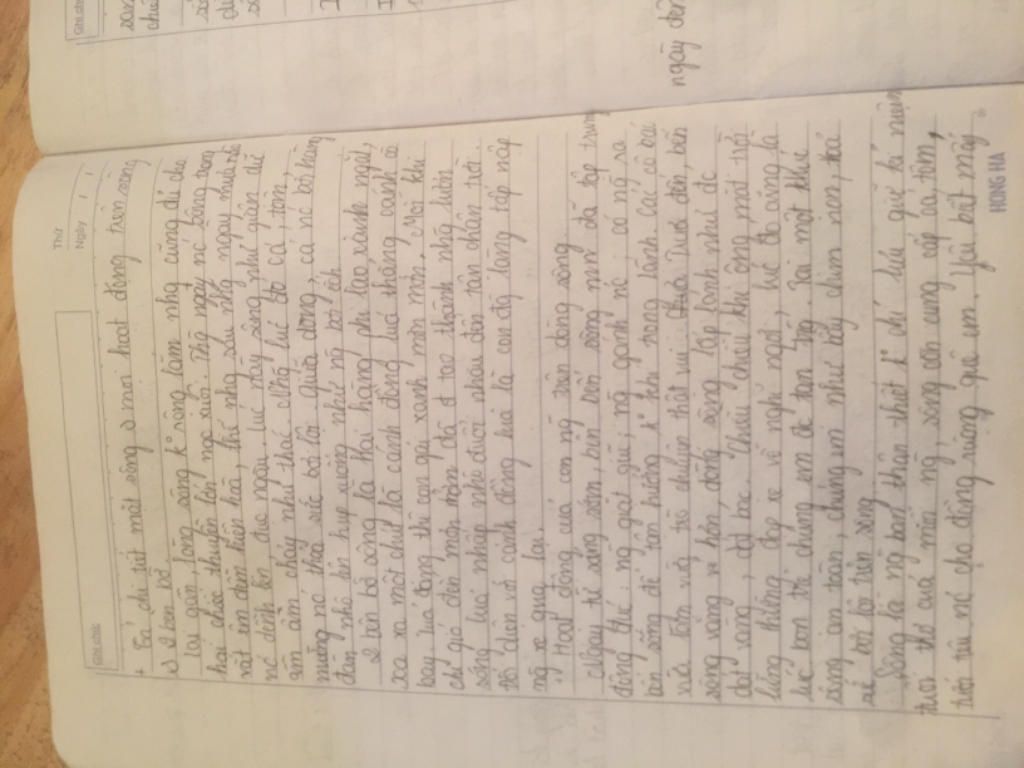 Ghi chú:
Thứ
Ngày / /
+ Tả chi tiết mặt sông và mọi hoạt động trên sông
và 2 bên bờ
Lại gần lòng sông k° sông lắm nhg cũng đủ đưa
hai chiếc thuyền lớn ngc xuôi. Nhg ngày nc sông trong
vắt êm đềm hiền hoà, thế nhg sau nhg ngày mưa nc
nc dềnh lên đục ngầu, lúc này sông như giận dữ
ầm ầm chảy như thác. Nhg lúc bờ cá, tôm,
mương nó thoả sức bơi lội giữa dòng, cá nc bờ hàng
đàn nhô lên hụp xuống như ng bơi ếch
2 bên bờ sông là hai hàng phi lao xanh ngắt,
xa xa một chút là cánh đồng luá thẳng cánh cò
bay, luá đang thì con gái xanh mơn mởn. Mỗi khi
chị gió đến mơn trớn đã tạo thành nhg luồn
sóng luá nhấp nhô đuổi nhau đến tận chân trời.
Đối diện với cánh đồng luá là con đg làng tấp nập
ng xe qua lại.
Hoạt động của con ng trên dòng sông
Ngay từ sáng sớm, bên bến sông mng đã tập trung
đông đúc, ng giặt giũ, ng gánh nc, có ng ra
bờ sông để tận hưởng k° khí trong lành. Các cô bác
vừa làm vừa trò chuyện thật vui Trưa đến, bến
sông vắng vẻ hơn dòng sông lấp lánh như đc
dát vàng, dát bạc. Chiều chiều khi ông mặt trời
lửng thửng đạp xe về nghỉ ngơi, lúc đó cũng là
lúc bọn trẻ chúng em đc tan trg. Tại một khu
sông an toàn, chúng em như bầy chim non, thoả
sức bơi lội trên sông
Sông là ng bạn thân thiết k° chỉ lưu giữ kỉ niệm
tuổi thơ của mỗi ng, sông còn cung cấp cá tôm,
tưới tiêu nc cho đồng ruộng quê em. Yêu biết mấy
HONG HA
Ghi chú
ngày đến